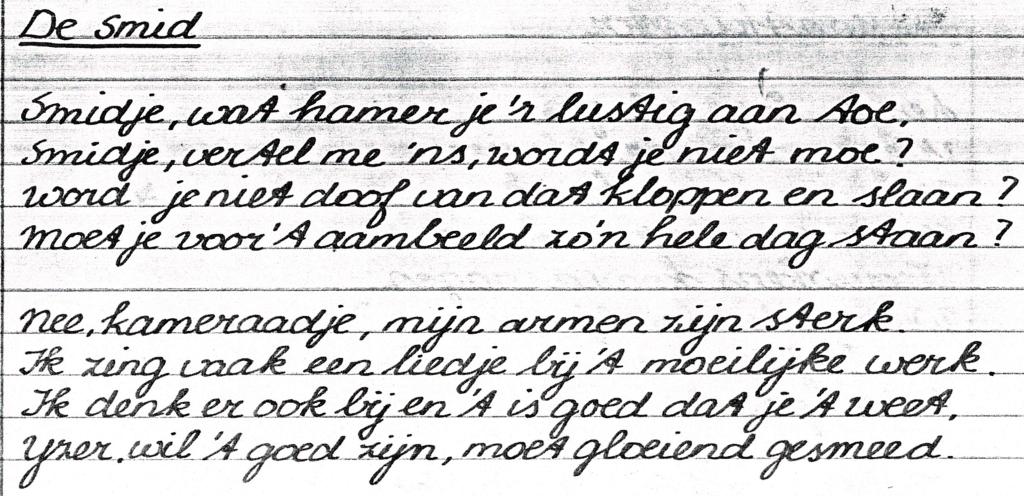 De smid
Smidje, wat hamer je 'r lustig aan toe,
Smidje, vertel me 'ns, wordt je niet moe?
word je niet doof van dat kloppen en slaan?
Moet je voor 't aambeeld zo'n hele dag staan?
Nee, kameraadje, mijn armen zijn sterk.
Ik zing vaak een liedje bij 't moeilijke werk.
Ik denk er ook bij en 't is goed dat je 't weet,
Yzer, wil 't goed zijn, moet gloeiend gesmeed.